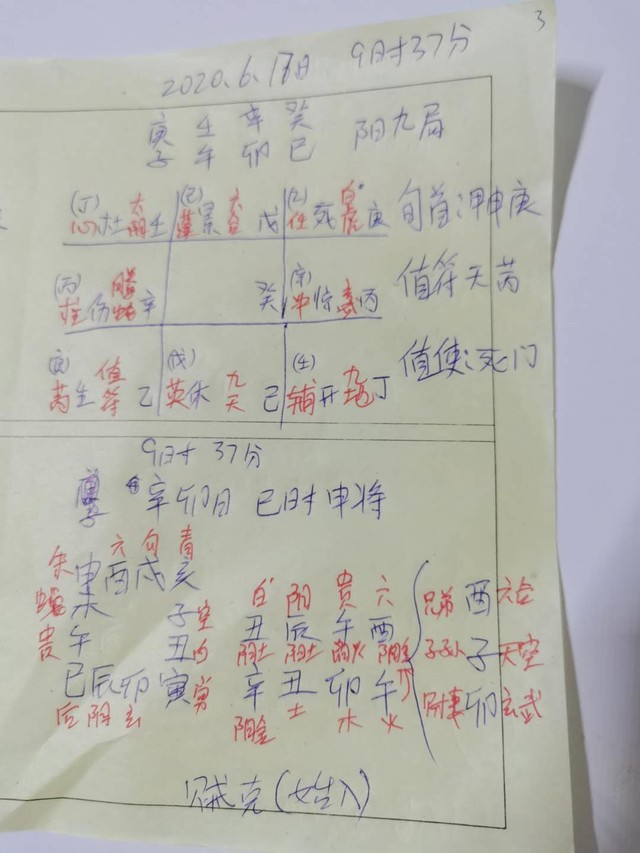 3
2020.6.17日 9时37分
庚 壬 辛 癸
子 午 卯 巳 阳九局
(丁) (己) 六 (乙) 白
心 杜 太阴 壬 蓬 景 六合 戊 任 死 白虎 庚 旬首:甲申庚
(丙) 螣 (辛)
柱 伤 螣蛇 辛 癸 冲 惊 玄 丙 值符天芮
(庚) (戊) (壬)
芮 生 值符 乙 英 休 九天 己 辅 开 九地 丁 值使:死门
9时37分
辛卯日 巳时申将
六 勾 青
朱 申 酉 戌 亥 白 阴 贵 六 兄弟 酉 六合
蛇 未 子 空 丑 辰 午 酉
贵 午 丑 白 阴土 阳土 阳火 阴金 子孙 子 天空
巳 辰 卯 寅 辛 丑 卯 午 财 卯 玄武
后 阴 玄 阴金 土 木 火
贼克(始入)